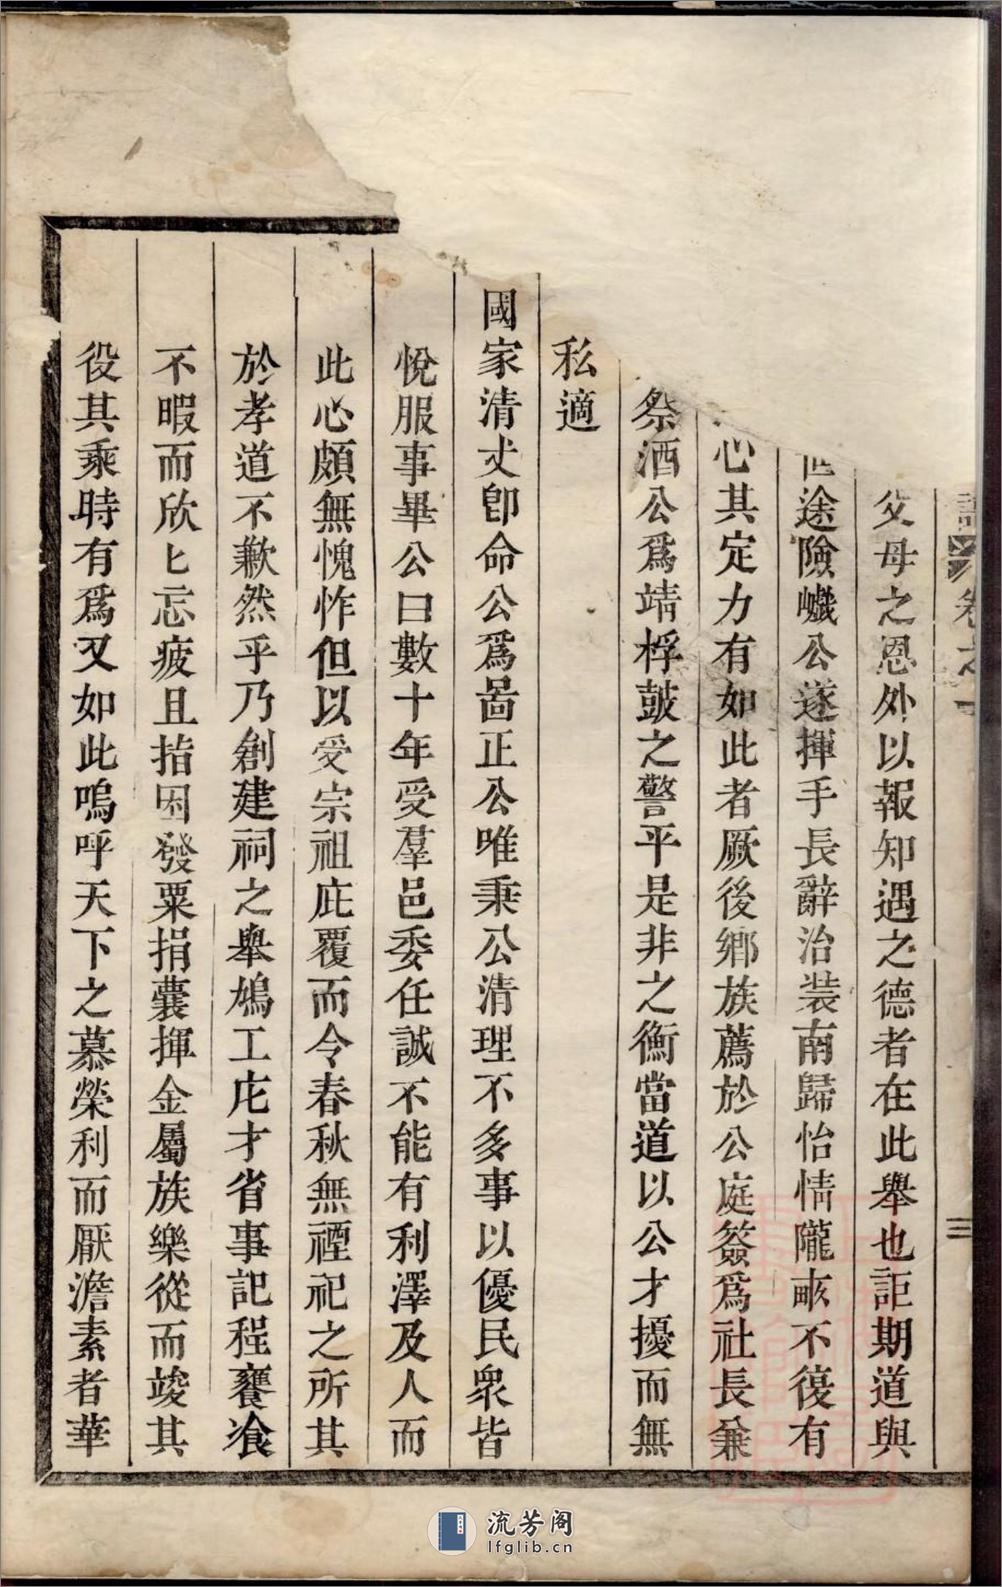 卷之一
三
父母之恩外以報知遇之德者在此舉也詎期道與
途險巇公遂揮手長辭治装南歸怡情隴畝不復有
心其定力有如此者厥後鄉族薦於公庭簽爲社長兼
祭酒公爲靖桴鼓之警平是非之衡當道以公才擾而無
私適
國家清丈卽命公爲啚正公唯秉公清理不多事以優民衆皆
悅服事畢公曰數十年受羣邑委任誠不能有利澤及人而
此心頗無愧怍但以受宗祖庇覆而令春秋無禋祀之所其
於孝道不歉然乎乃創建祠之舉鳩工庀才省事記程饔飡
不暇而欣匕忘疲且指囷發粟捐囊揮金屬族樂從而竣其
役其乘時有爲又如此嗚呼天下之慕榮利而厭澹素者華
流芳阁
lfglib.cn